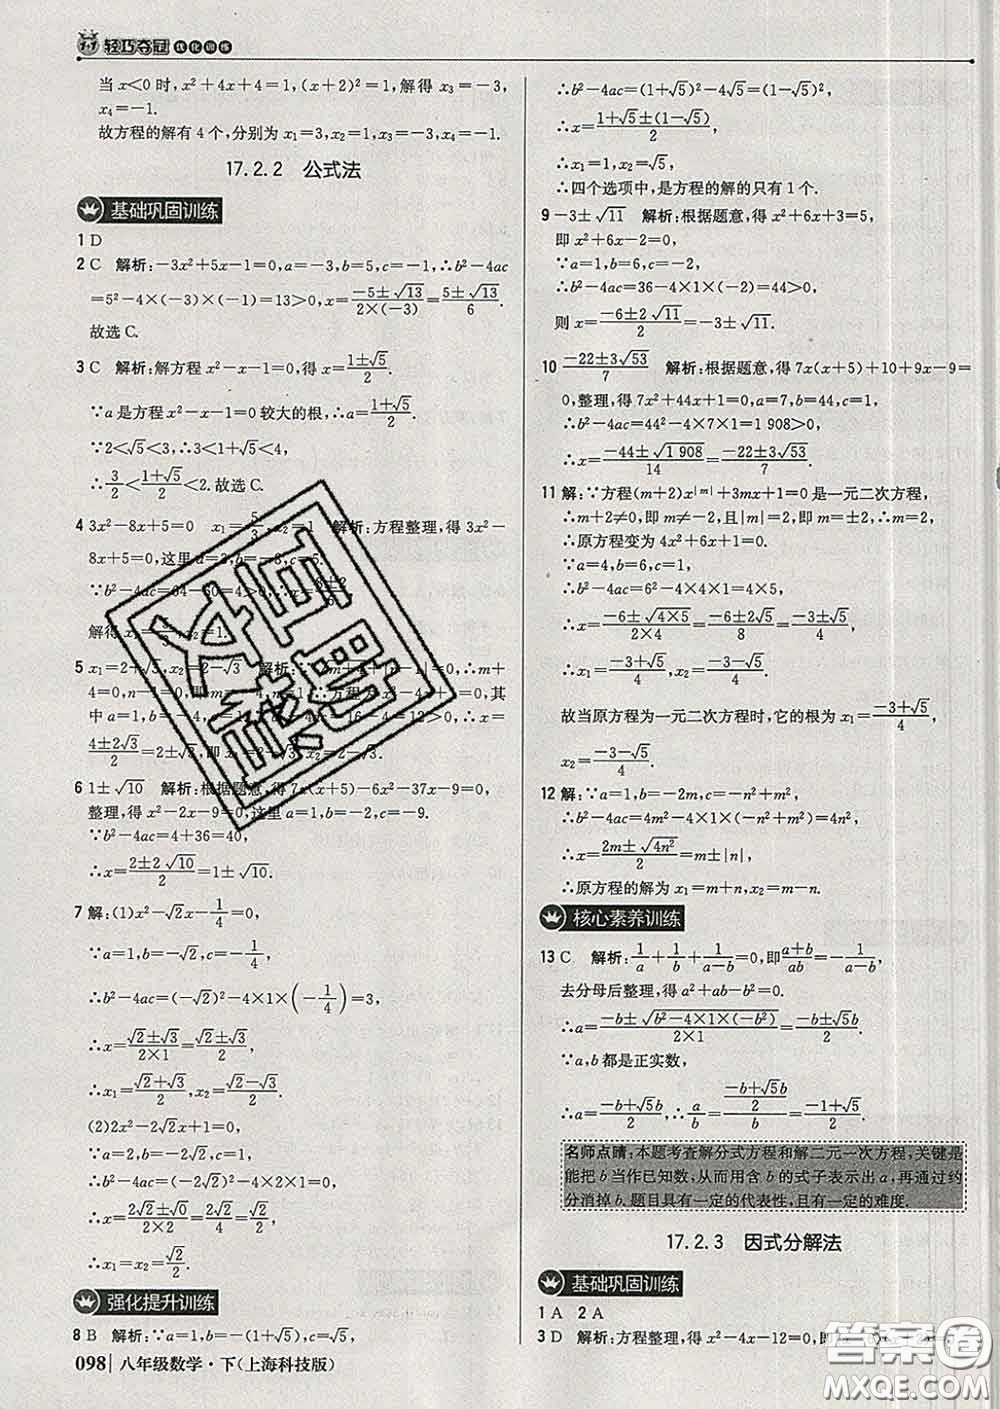 1+1 轻巧夺冠 优化训练
当 x<0 时, x²+4x+4=1, (x+2)²=1, 解得 x₃=-3,
x₄=-1.
故方程的解有 4 个, 分别为 x₁=3, x₂=1, x₃=-3, x₄=-1.
17.2.2 公式法
基础巩固训练
1 D
2 C 解析: -3x²+5x-1=0, a=-3, b=5, c=-1, ∴b²-4ac
=5²-4×(-3)×(-1)=13>0, x=(-5±√13)/(2×(-3))=(5±√13)/6.
故选 C.
3 C 解析: 解方程 x²-x-1=0, 得 x=(1±√5)/2.
∵a 是方程 x²-x-1=0 较大的根, ∴a=(1+√5)/2.
∵2<√5<3, ∴3<1+√5<4,
∴3/2<(1+√5)/2<2. 故选 C.
4 3x²-8x+5=0 x₁=5/3, x₂=1 解析: 方程整理, 得 3x²-
8x+5=0, 这里 a=3, b=-8, c=5,
∵b²-4ac=64-60=4, ∴x=(8±2)/6,
解得 x₁=5/3, x₂=1.
5 x₁=2+√3, x₂=2-√3 解析: ∵ m+4 +|n-1|=0, ∴m+
4=0, n-1=0, m=-4, n=1, ∴方程为 x²-4x+1=0, 其
中 a=1, b=-4, c=1, b²-4ac=16-4=12>0, ∴x=
(4±2√3)/2=2±√3, 即 x₁=2+√3, x₂=2-√3.
6 1±√10 解析: 根据题意, 得 7x(x+5)-6x²-37x-9=0,
整理, 得 x²-2x-9=0, 这里 a=1, b=-2, c=-9.
∵b²-4ac=4+36=40,
∴x=(2±2√10)/2=1±√10.
7 解: (1)x²-√2x-1/4=0,
∵a=1, b=-√2, c=-1/4,
∴b²-4ac=(-√2)²-4×1×(-1/4)=3,
∴x=(√2±√3)/(2×1)=(√2±√3)/2,
∴x₁=(√2+√3)/2, x₂=(√2-√3)/2.
(2)2x²-2√2x+1=0,
∵a=2, b=-2√2, c=1,
∴b²-4ac=(-2√2)²-4×2×1=0,
∴x=(2√2±√0)/(2×2)=(2√2±0)/4,
∴x₁=x₂=√2/2.
强化提升训练
8 B 解析: ∵a=1, b=-(1+√5), c=√5,
098 八年级数学·下(上海科技版)
∴b²-4ac=(1+√5)²-4√5=(1-√5)²,
∴x=(1+√5±(1-√5))/2,
∴x₁=1, x₂=√5,
∴四个选项中, 是方程的解的只有 1 个.
9 -3±√11 解析: 根据题意, 得 x²+6x+3=5,
即 x²+6x-2=0,
∵a=1, b=6, c=-2,
∴b²-4ac=36-4×1×(-2)=44>0,
则 x=(-6±2√11)/2=-3±√11.
10 (-22±3√53)/7 解析: 根据题意, 得 7x(x+5)+10+9x-9=
0, 整理, 得 7x²+44x+1=0, ∵a=7, b=44, c=1,
∴b²-4ac=44²-4×7×1=1 908>0,
∴x=(-44±√1 908)/14=(-22±3√53)/7.
11 解: ∵方程(m+2)x^|m|+3mx+1=0 是一元二次方程,
∴m+2≠0, 即 m≠-2, 且|m|=2, 即 m=±2, ∴m=2,
∴原方程变为 4x²+6x+1=0,
∵a=4, b=6, c=1,
∴b²-4ac=6²-4×4×1=4×5,
∴x=(-6±√(4×5))/(2×4)=(-6±2√5)/8=(-3±√5)/4,
∴x₁=(-3+√5)/4, x₂=(-3-√5)/4.
故当原方程为一元二次方程时, 它的根为 x₁=(-3+√5)/4,
x₂=(-3-√5)/4.
12 解: ∵a=1, b=-2m, c=m²-n²,
∴b²-4ac=4m²-4×1×(-n²+m²)=4n²,
∴x=(2m±√4n²)/2=m±|n|,
∴原方程的解为 x₁=m+n, x₂=m-n.
核心素养训练
13 C 解析: ∵1/a+1/b+1/(a-b)=0, 即(a+b)/ab=-1/(a-b),
去分母后整理, 得 a²+ab-b²=0,
∴a=(-b±√(b²-4×1×(-b²)))/(2×1)=(-b±√5b)/2.
∵a, b 都是正实数,
∴a=(-b+√5b)/2, ∴a/b=((-b+√5b)/2)/b=(-1+√5)/2.
名师点睛: 本题考查解分式方程和解二元一次方程, 关键是
能把 b 当作已知数, 从而用含 b 的式子表示出 a, 再通过约
分消掉 b. 题目具有一定的代表性, 且有一定的难度.
17.2.3 因式分解法
基础巩固训练
1 A 2 A
3 D 解析: 方程整理, 得 x²-4x-12=0, 即
答案圈
MXQE.COM